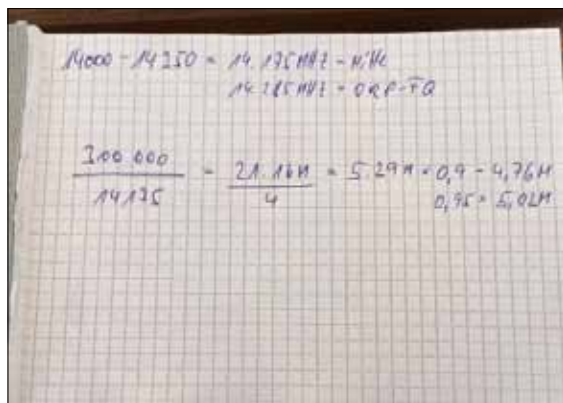 14000 - 14350 = 14.175MHz -
14.285MHz - QRP-FQ
300 000 / 14175 = 21.16M / 4 = 5.29M × 0,9 - 4,76M
0,95 = 5,02M